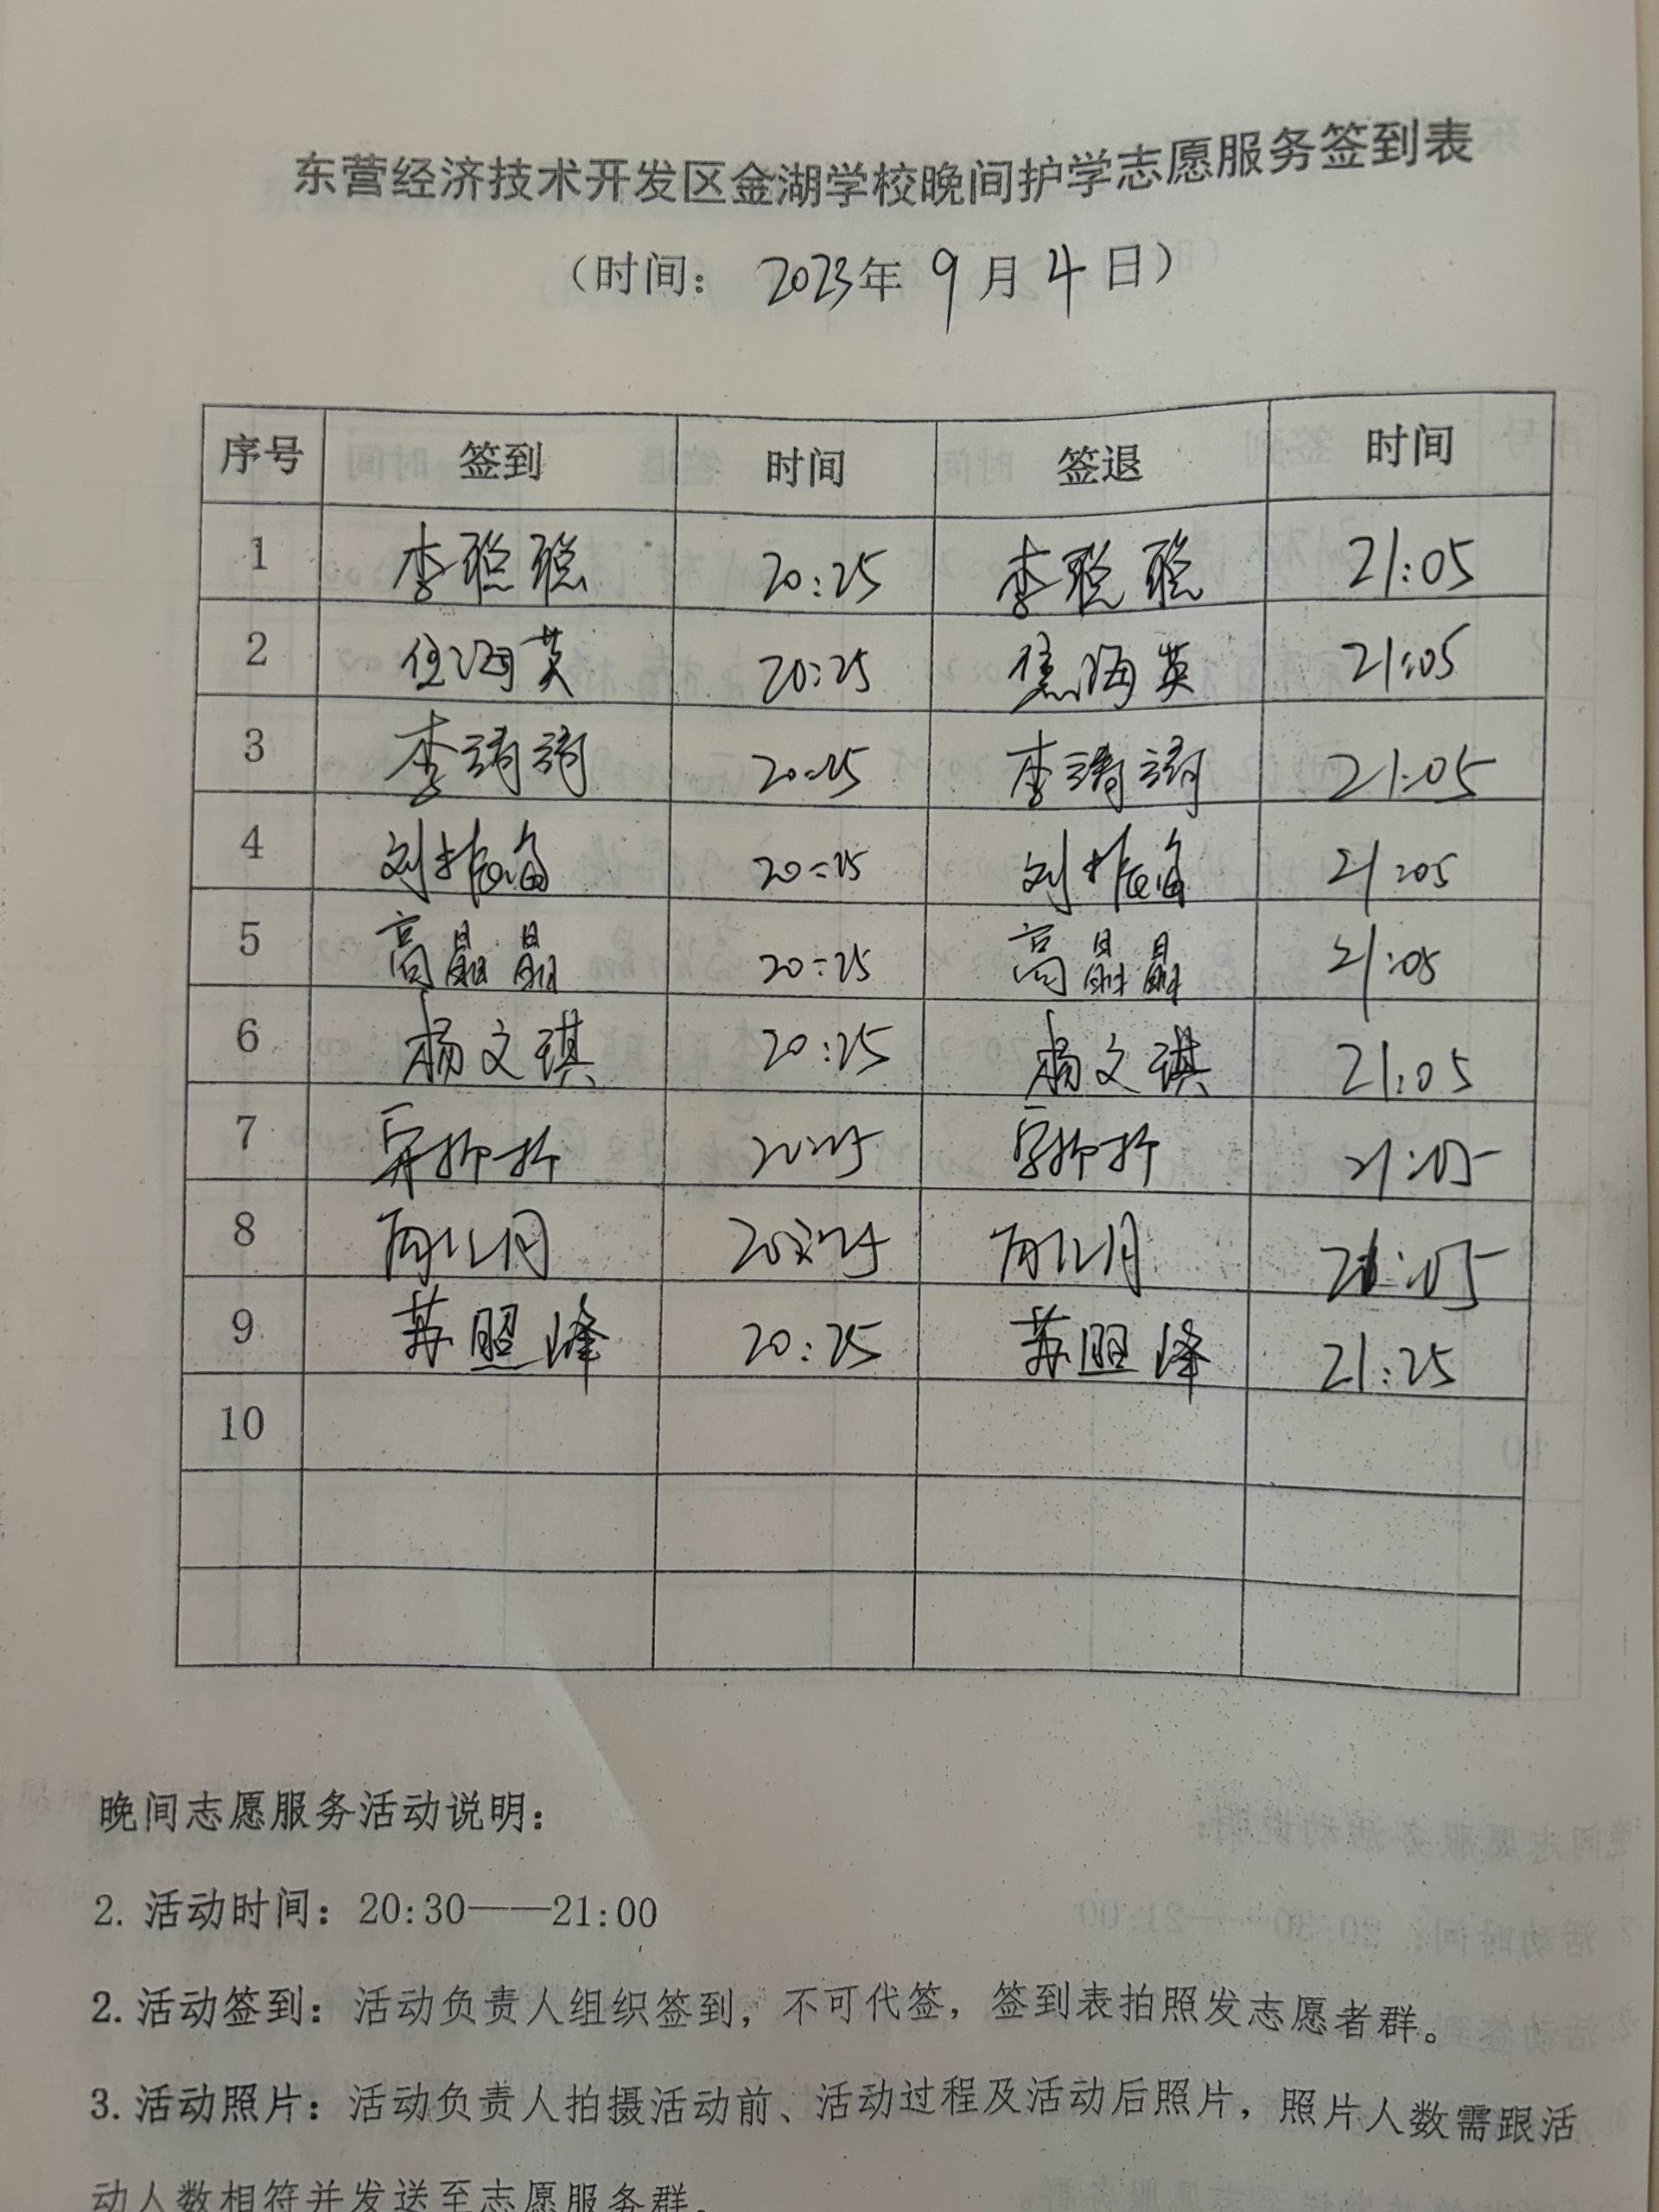 东营经济技术开发区金湖学校晚间护学志愿服务签到表
（时间： 2023年 9 月 4 日）
序号 签到 时间 签退 时间
1 李聪聪 20:25 李聪聪 21:05
2 焦海英 20:25 焦海英 21:05
3 李 20:25 李 21:05
4 刘 20:25 刘 21:05
5 高晶晶 20:25 高晶晶 21:05
6 杨文琪 20:25 杨文琪 21:05
7 20:25 21:05
8 20:25 21:05
9 苏照峰 20:25 苏照峰 21:25
10
晚间志愿服务活动说明：
2. 活动时间：20:30——21:00
2. 活动签到：活动负责人组织签到，不可代签，签到表拍照发志愿者群。
3. 活动照片：活动负责人拍摄活动前、活动过程及活动后照片，照片人数需跟活
动人数相符并发送至志愿服务群。